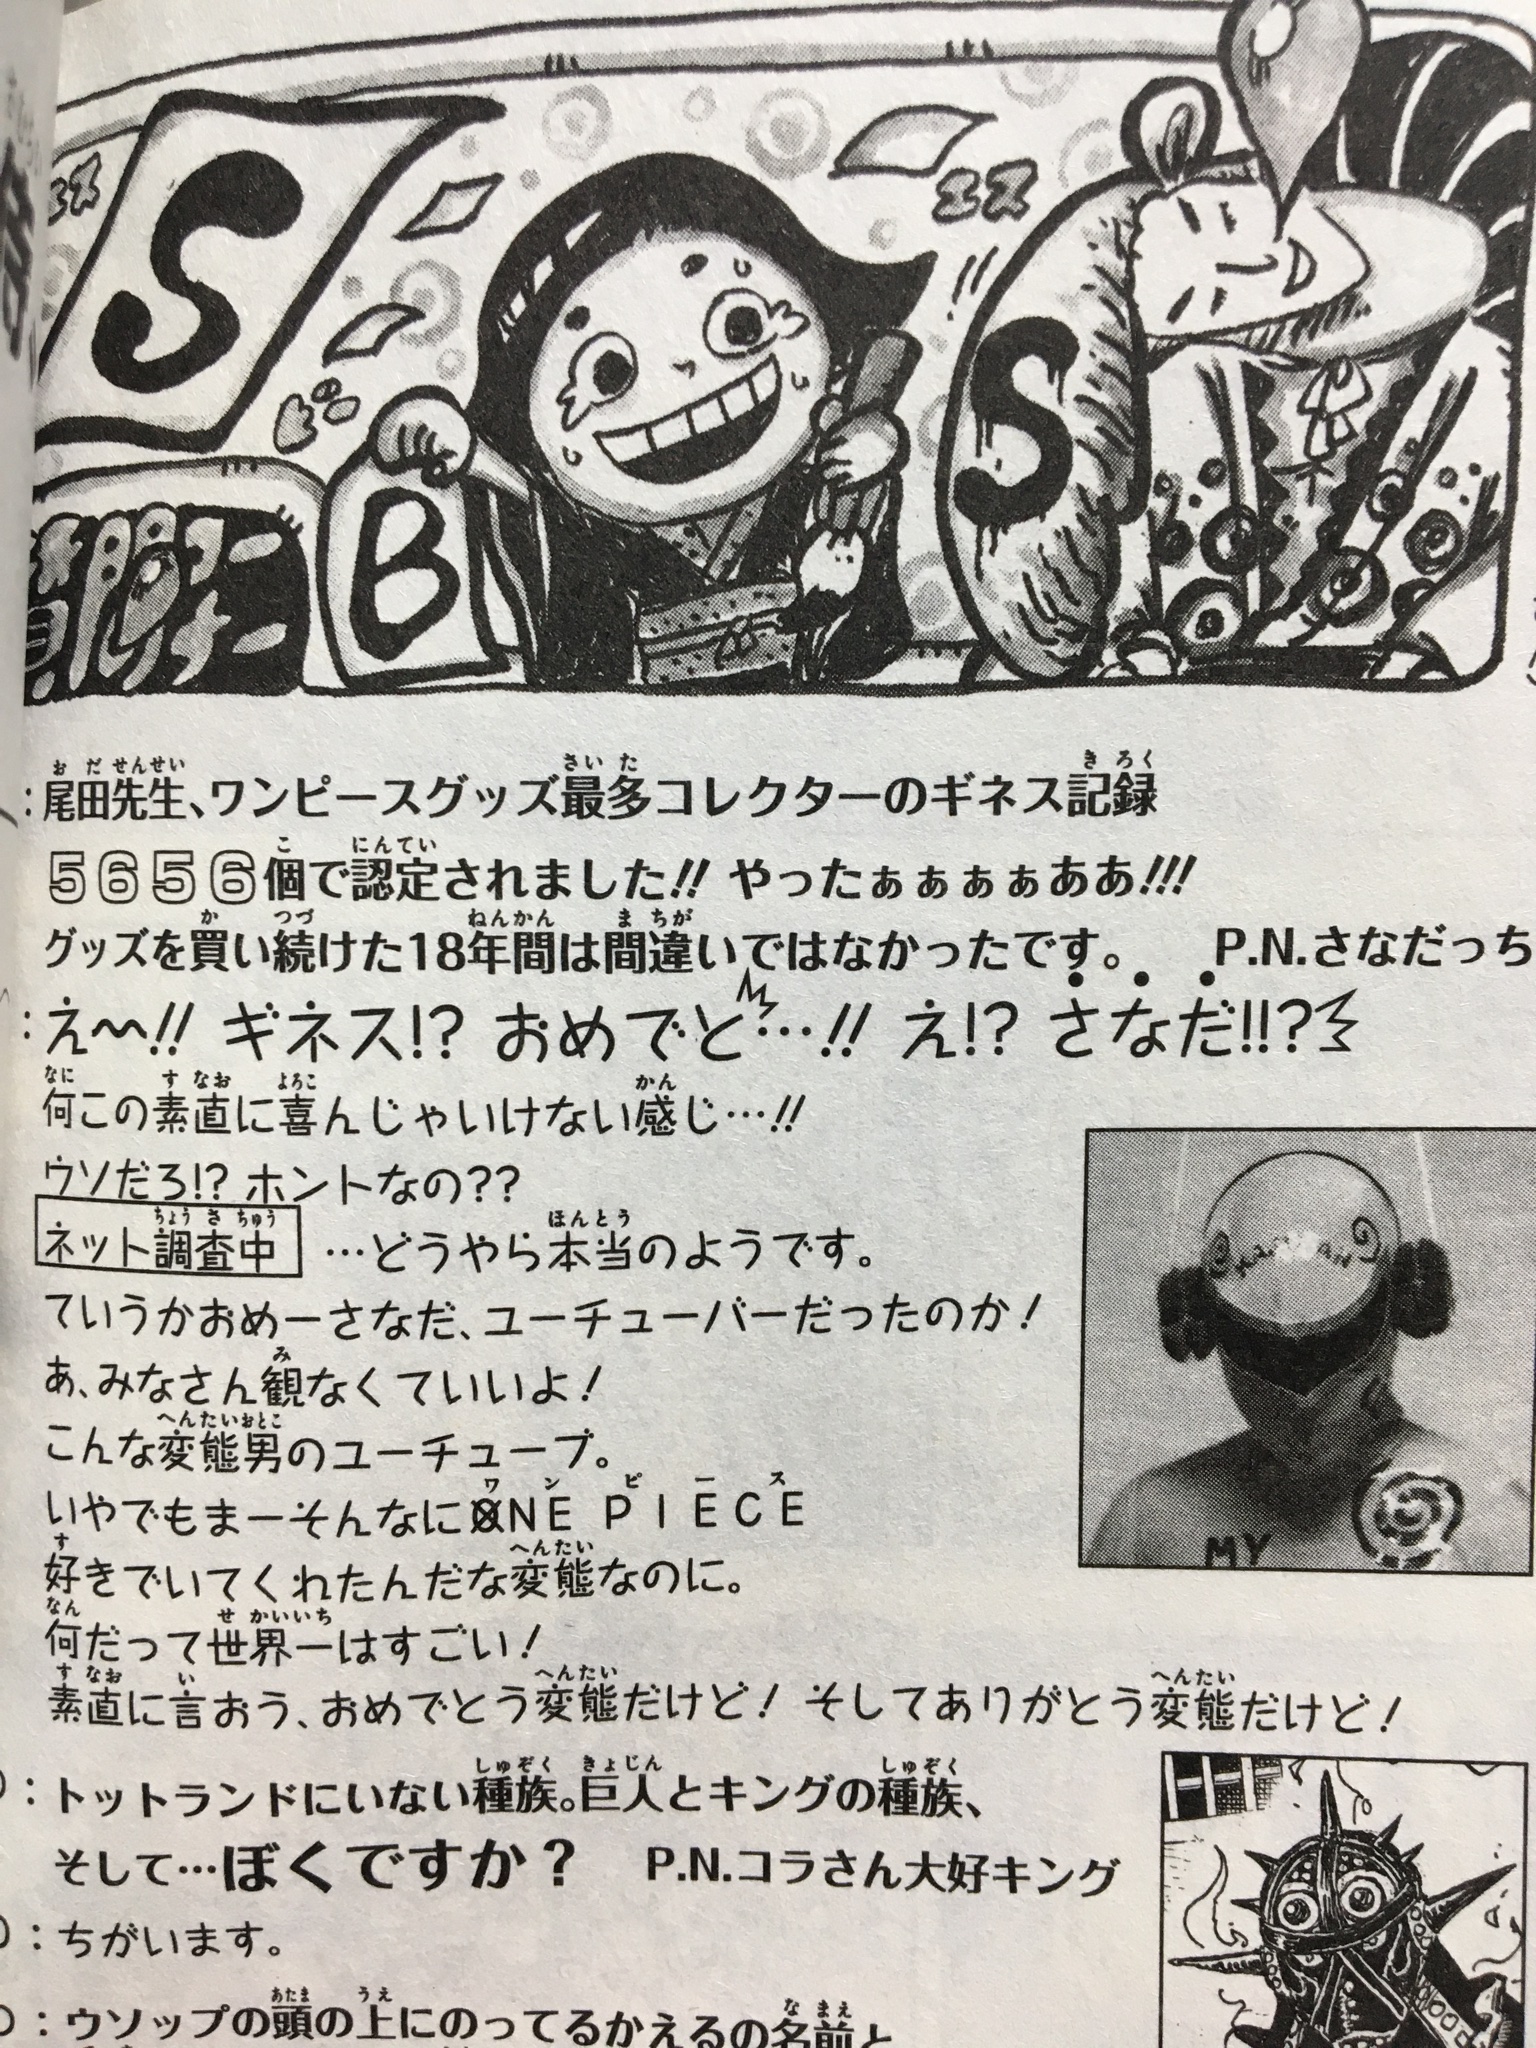 S
B
S
ズズ
ビー
:尾田先生、ワンピースグッズ最多コレクターのギネス記録
5656個で認定されました!! やったぁぁぁぁああ!!!
グッズを買い続けた18年間は間違いではなかったです。 P.N.さなだっち
:え〜!! ギネス!? おめでと…!! え!? さなだ!!?
何この素直に喜んじゃいけない感じ…!!
ウソだろ!? ホントなの??
ネット調査中 …どうやら本当のようです。
ていうかおめーさなだ、ユーチューバーだったのか!
あ、みなさん観なくていいよ!
こんな変態男のユーチューブ。
いやでもまーそんなにONE PIECE
好きでいてくれたんだな変態なのに。
何だって世界一はすごい!
素直に言おう、おめでとう変態だけど! そしてありがとう変態だけど!
MY
:トットランドにいない種族。巨人とキングの種族、
そして…ぼくですか? P.N.コラさん大好キング
:ちがいます。
:ウソップの頭の上にのってるかえるの名前と